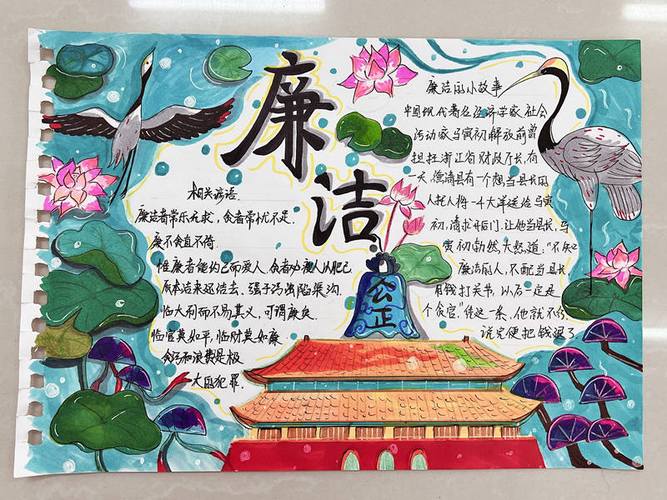 廉洁
相关谚语
廉洁者常乐无求，贪者常忧不足。
廉不贪直不倚
惟廉者能约己而爱人，贪者必视人以肥己
质本洁来还洁去，强于污淖陷渠沟
临大利而不易其义，可谓廉矣
临官莫如平，临财莫如廉
贪污和浪费是极
大的犯罪
公正
廉洁的小故事
中国现代著名经济学家社会
活动家马寅初解放前曾
担任浙江省财政厅长，有
一天，德清县有一个想当县长的
人托人将一4大洋送给马寅
初，请求开后门，让他当县长，马
寅初勃然大怒道："不知
廉洁的人，不配当县长
用钱打关节，以后一定是
个贪官"凭这一条，他就不行
说完便把钱退了